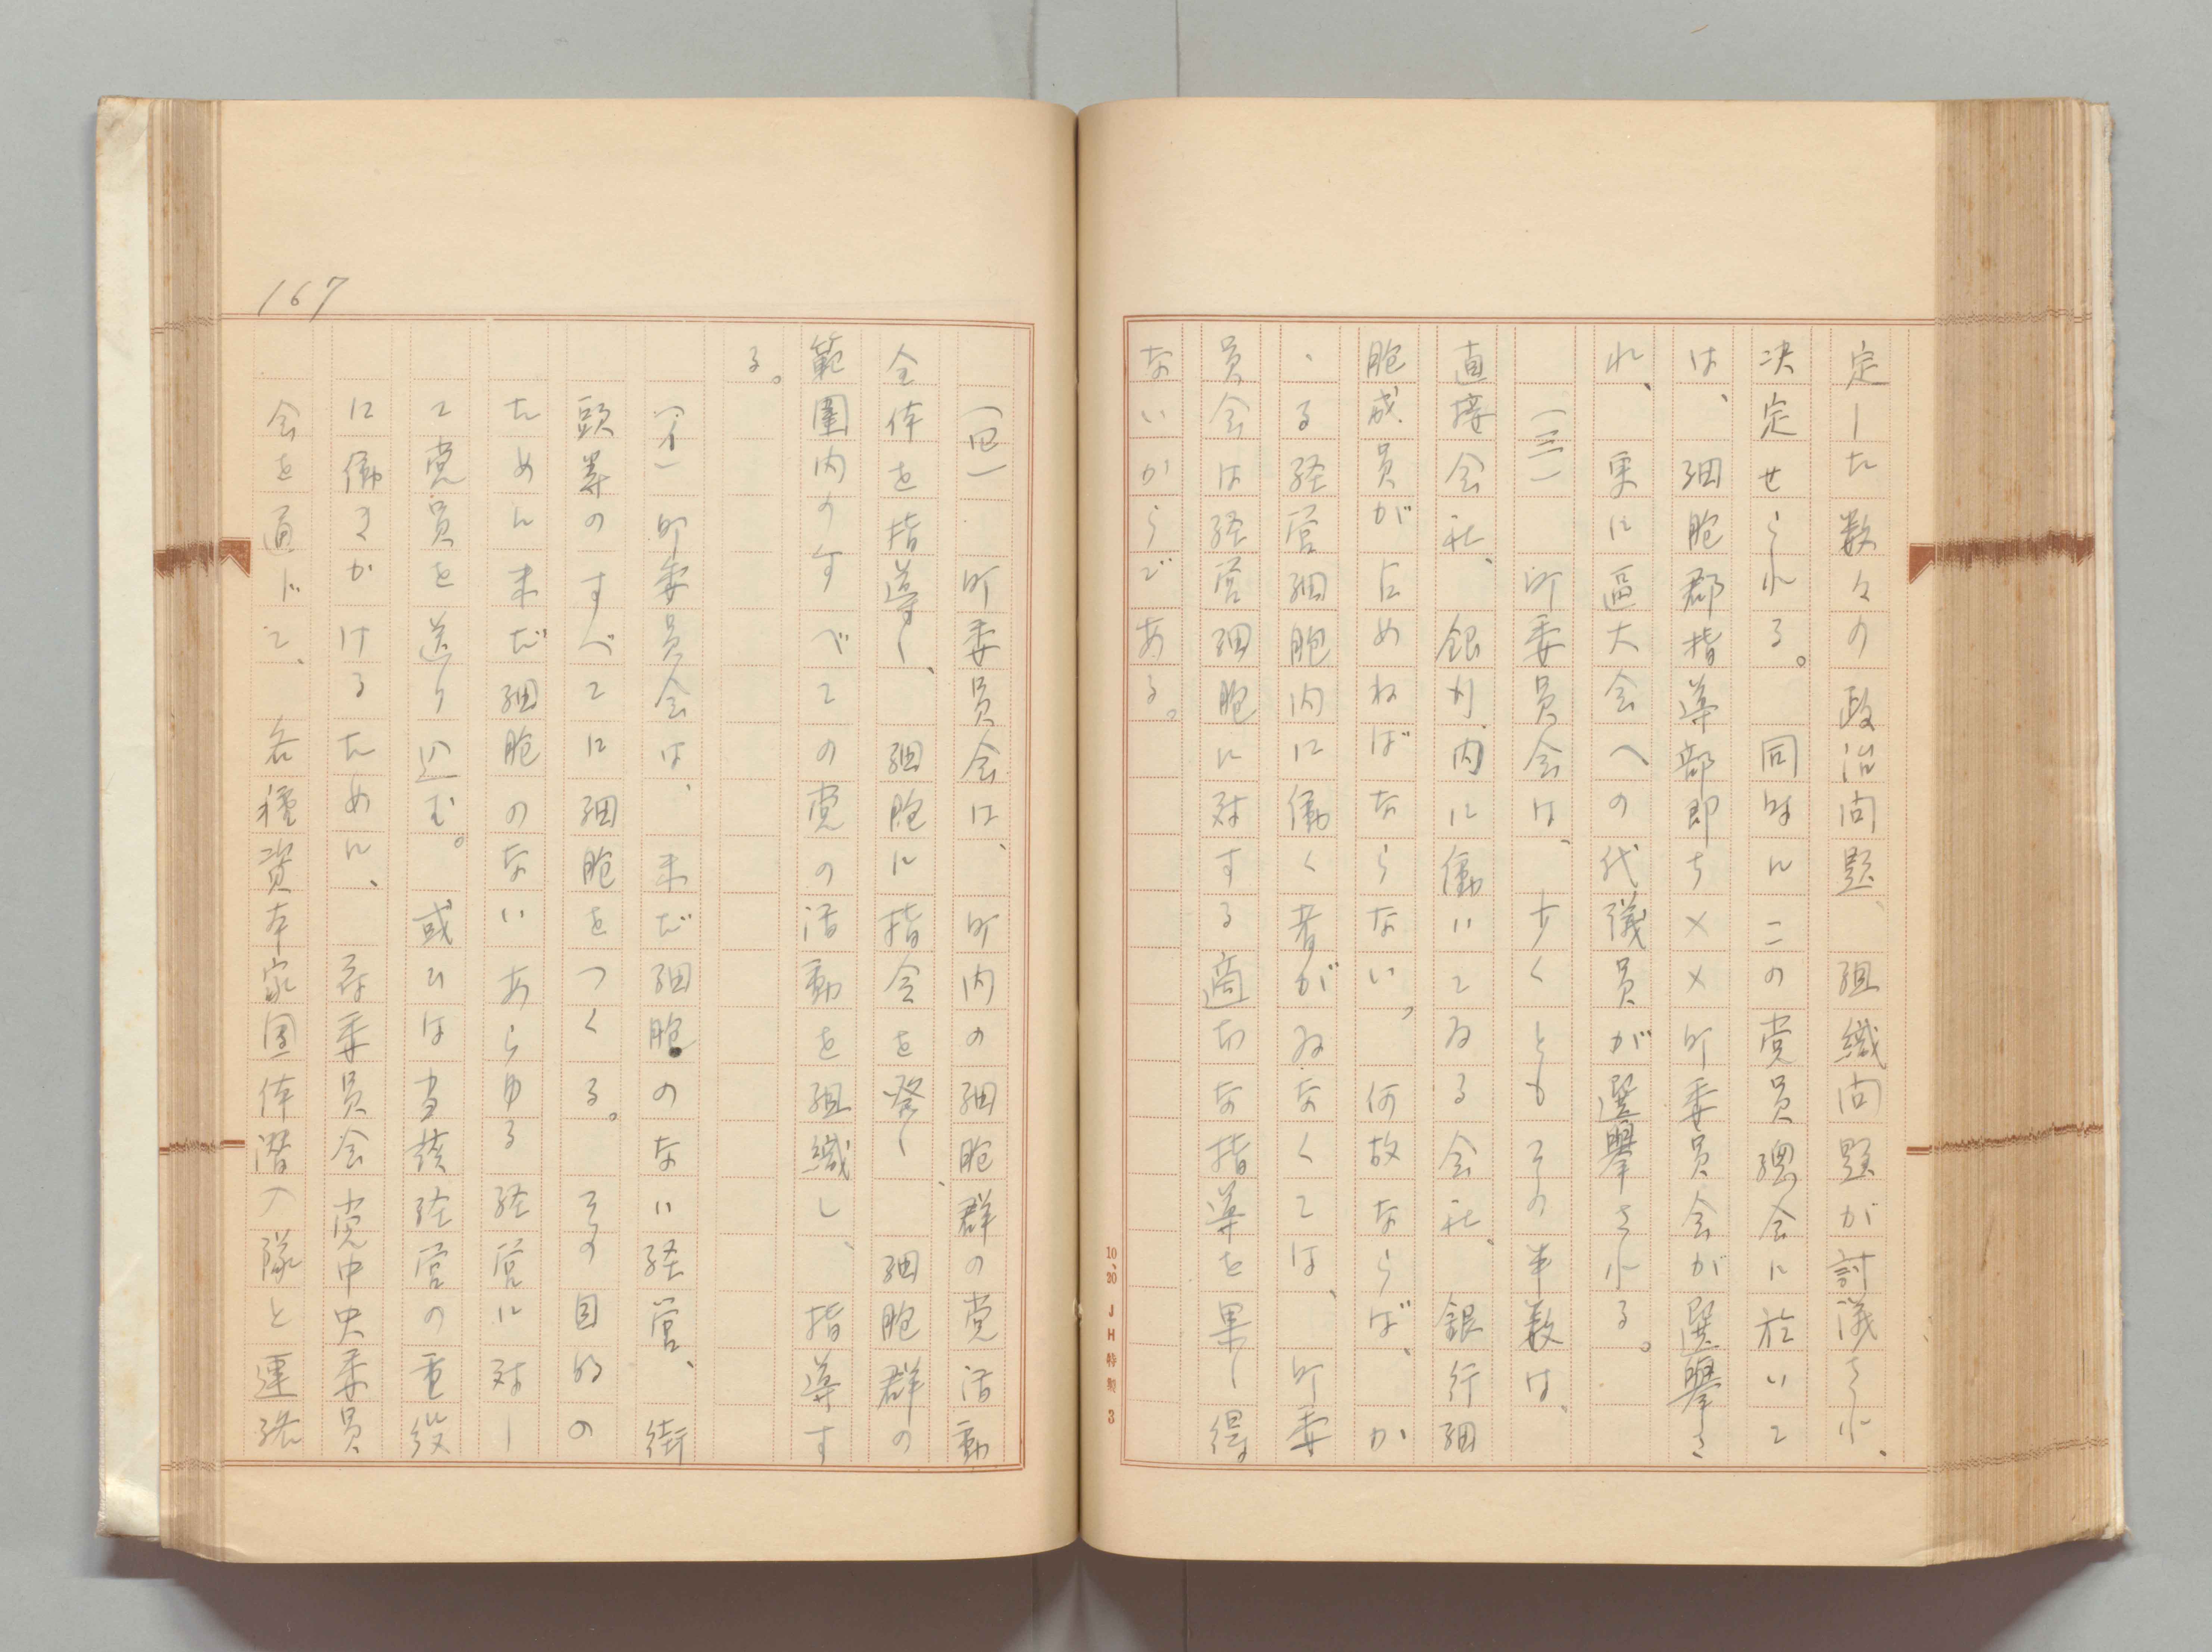 定した数々の政治問題、組織問題が討議され、
決定せられる。同時にこの党員総会に於いて
は、細胞群指導部即ち××町委員会が選擧さ
れ、更に區大会への代議員が選擧される。
(三)町委員会は、少くともその半数は、
直接会社、銀行内に働いてゐる会社、銀行細
胞成員が占めねばならない。何故ならば、か
ゝる経営細胞内に働く者がゐなくては、町委
員会は経営細胞に対する適切な指導を果し得
ないからである。
10、20 JH特製 3
167
(四)町委員会は、町内の細胞群の党活動
全体を指導し、細胞に指令を発し、細胞群の
範圍内のすべての党の活動を組織し、指導す
る。
(イ)町委員会は、未だ細胞のない経営、街
頭等のすべてに細胞をつくる。その目的の
ために未だ細胞のないあらゆる経営に対し
て党員を送り込む。或ひは当該経営の重役
に働きかけるために、委員会党中央委員
会を通じて、各種資本家団体潜入隊と連絡